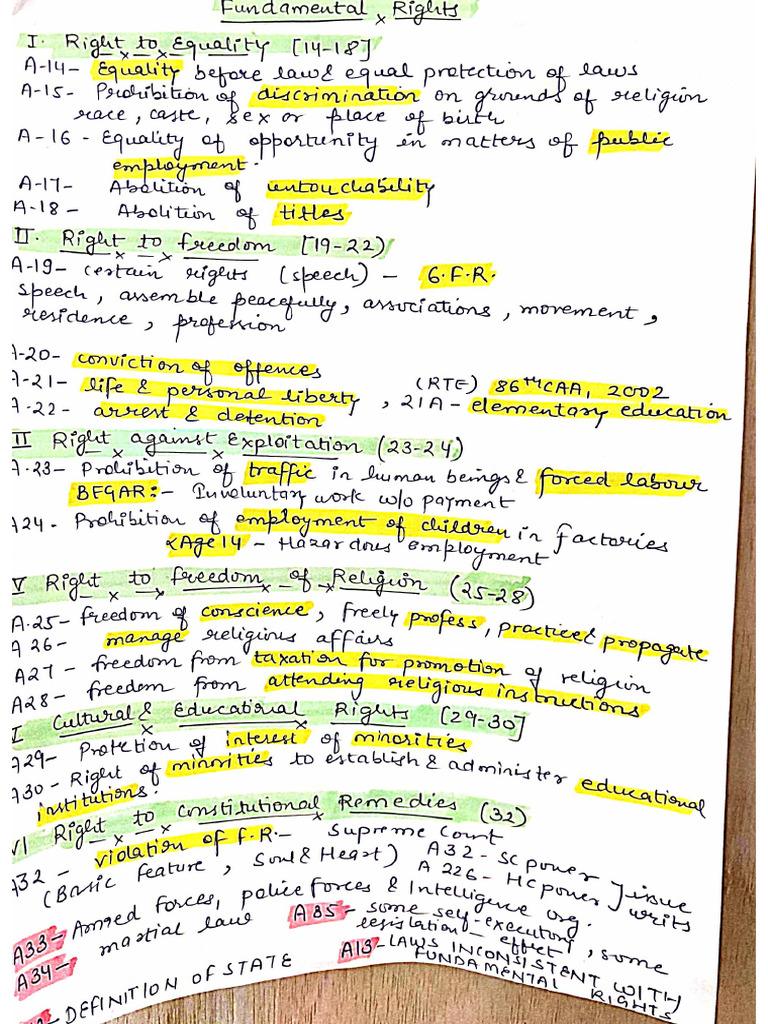 Fundamental Rights
I. Right to Equality [14-18]
A-14- Equality before law & equal protection of laws
A-15- Prohibition of discrimination on grounds of religion
race, caste, sex or place of birth
A-16 - Equality of opportunity in matters of public
employment.
A-17- Abolition of untouchability
A-18- Abolition of titles
II. Right to freedom [19-22)
A-19- certain rights (speech) - 6.F.R.
speech, assemble peacefully, associations, movement,
residence, profession
A-20- conviction of offences
A-21- life & personal liberty, 21A- elementary education
(RTE) 86th CAA, 2002
A-22- arrest & detention
II Right against Exploitation (23-24)
A-23- Prohibition of traffic in human beings & forced labour
BEGAR:- Involuntary work w/o payment
A24- Prohibition of employment of children in factories
<Age 14 - Hazardous employment
V Right to freedom of Religion (25-28)
A.25- freedom of conscience, freely profess, practice & propagate
A 26- manage religious affairs
A27- freedom from taxation for promotion of religion
A28- freedom from attending religious instructions
I Cultural & Educational Rights [29-30]
A29- Protetion of interest of minorities
A30- Right of minorities to establish & administer educational
institutions.
VI Right to Constitutional Remedies (32)
A32 - violation of F.R.- Supreme Court
(Basic feature, Soul & Heart) A32- SC power Issue
A 226- HC power writs
A33- Armed forces, police forces & Intelligence org.
A34- martial law
A35- some self-executory, some
legislation effect
A13- LAWS INCONSISTENT WITH
FUNDAMENTAL RIGHTS
- DEFINITION OF STATE